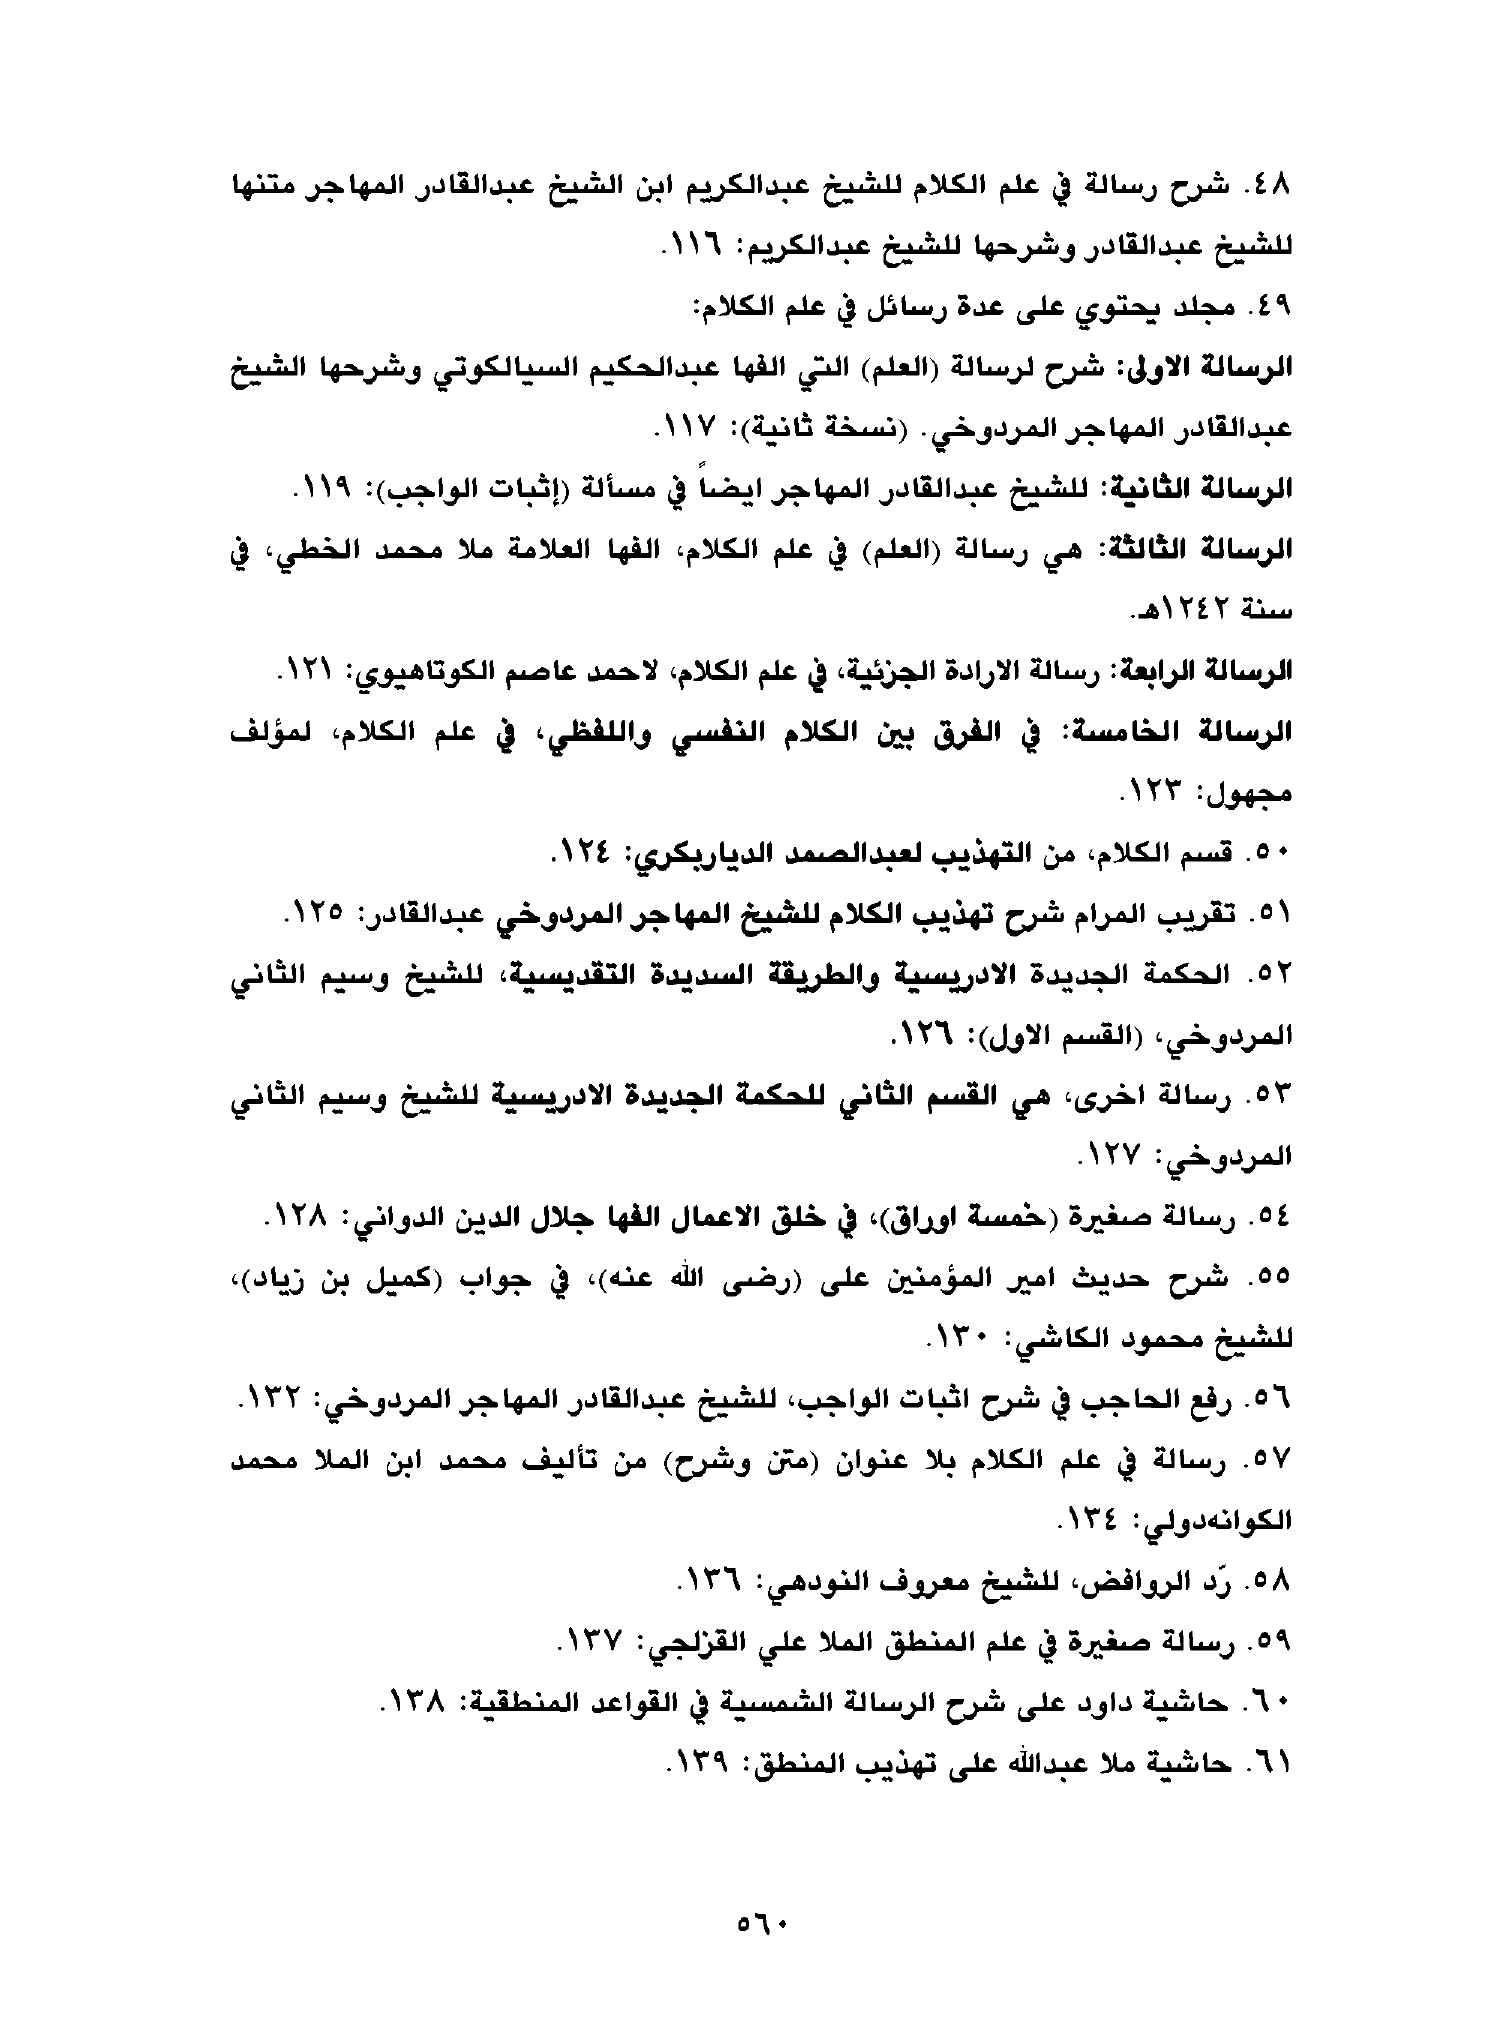 ٤٨. شرح رسالة في علم الكلام للشيخ عبدالكريم ابن الشيخ عبدالقادر المهاجر متنها
للشيخ عبدالقادر وشرحها للشيخ عبدالكريم: ١١٦.
٤٩. مجلد يحتوي على عدة رسائل في علم الكلام:
الرسالة الاولى: شرح لرسالة (العلم) التي الفها عبدالحكيم السيالكوتي وشرحها الشيخ
عبدالقادر المهاجر المردوخي. (نسخة ثانية): ١١٧.
الرسالة الثانية: للشيخ عبدالقادر المهاجر ايضاً في مسألة (إثبات الواجب): ١١٩.
الرسالة الثالثة: هي رسالة (العلم) في علم الكلام، الفها العلامة ملا محمد الخطي، في
سنة ١٢٤٢هـ.
الرسالة الرابعة: رسالة الارادة الجزئية، في علم الكلام، لاحمد عاصم الكوتاهيوي: ١٢١.
الرسالة الخامسة: في الفرق بين الكلام النفسي واللفظي، في علم الكلام، لمؤلف
مجهول: ١٢٣.
٥٠. قسم الكلام، من التهذيب لعبدالصمد الدياربكري: ١٢٤.
٥١. تقريب المرام شرح تهذيب الكلام للشيخ المهاجر المردوخي عبدالقادر: ١٢٥.
٥٢. الحكمة الجديدة الادريسية والطريقة السديدة التقديسية، للشيخ وسيم الثاني
المردوخي، (القسم الاول): ١٢٦.
٥٣. رسالة اخرى، هي القسم الثاني للحكمة الجديدة الادريسية للشيخ وسيم الثاني
المردوخي: ١٢٧.
٥٤. رسالة صغيرة (خمسة اوراق)، في خلق الاعمال الفها جلال الدين الدواني: ١٢٨.
٥٥. شرح حديث امير المؤمنين على (رضى الله عنه)، في جواب (كميل بن زياد)،
للشيخ محمود الكاشي: ١٣٠.
٥٦. رفع الحاجب في شرح اثبات الواجب، للشيخ عبدالقادر المهاجر المردوخي: ١٣٢.
٥٧. رسالة في علم الكلام بلا عنوان (متن وشرح) من تأليف محمد ابن الملا محمد
الكوانەدولي: ١٣٤.
٥٨. رّد الروافض، للشيخ معروف النودهي: ١٣٦.
٥٩. رسالة صغيرة في علم المنطق الملا علي القزلجي: ١٣٧.
٦٠. حاشية داود على شرح الرسالة الشمسية في القواعد المنطقية: ١٣٨.
٦١. حاشية ملا عبدالله على تهذيب المنطق: ١٣٩.
٥٦٠